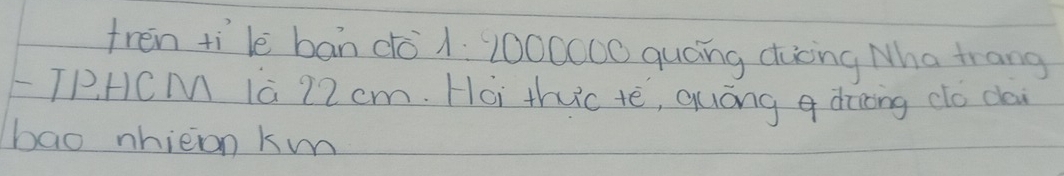 trên tỉ lệ bản đồ 1:2000000 quãng đường Nha trang
- TP.HCM là 22 cm. Hỏi thực tế, quãng đường đó dài
bao nhiêu km